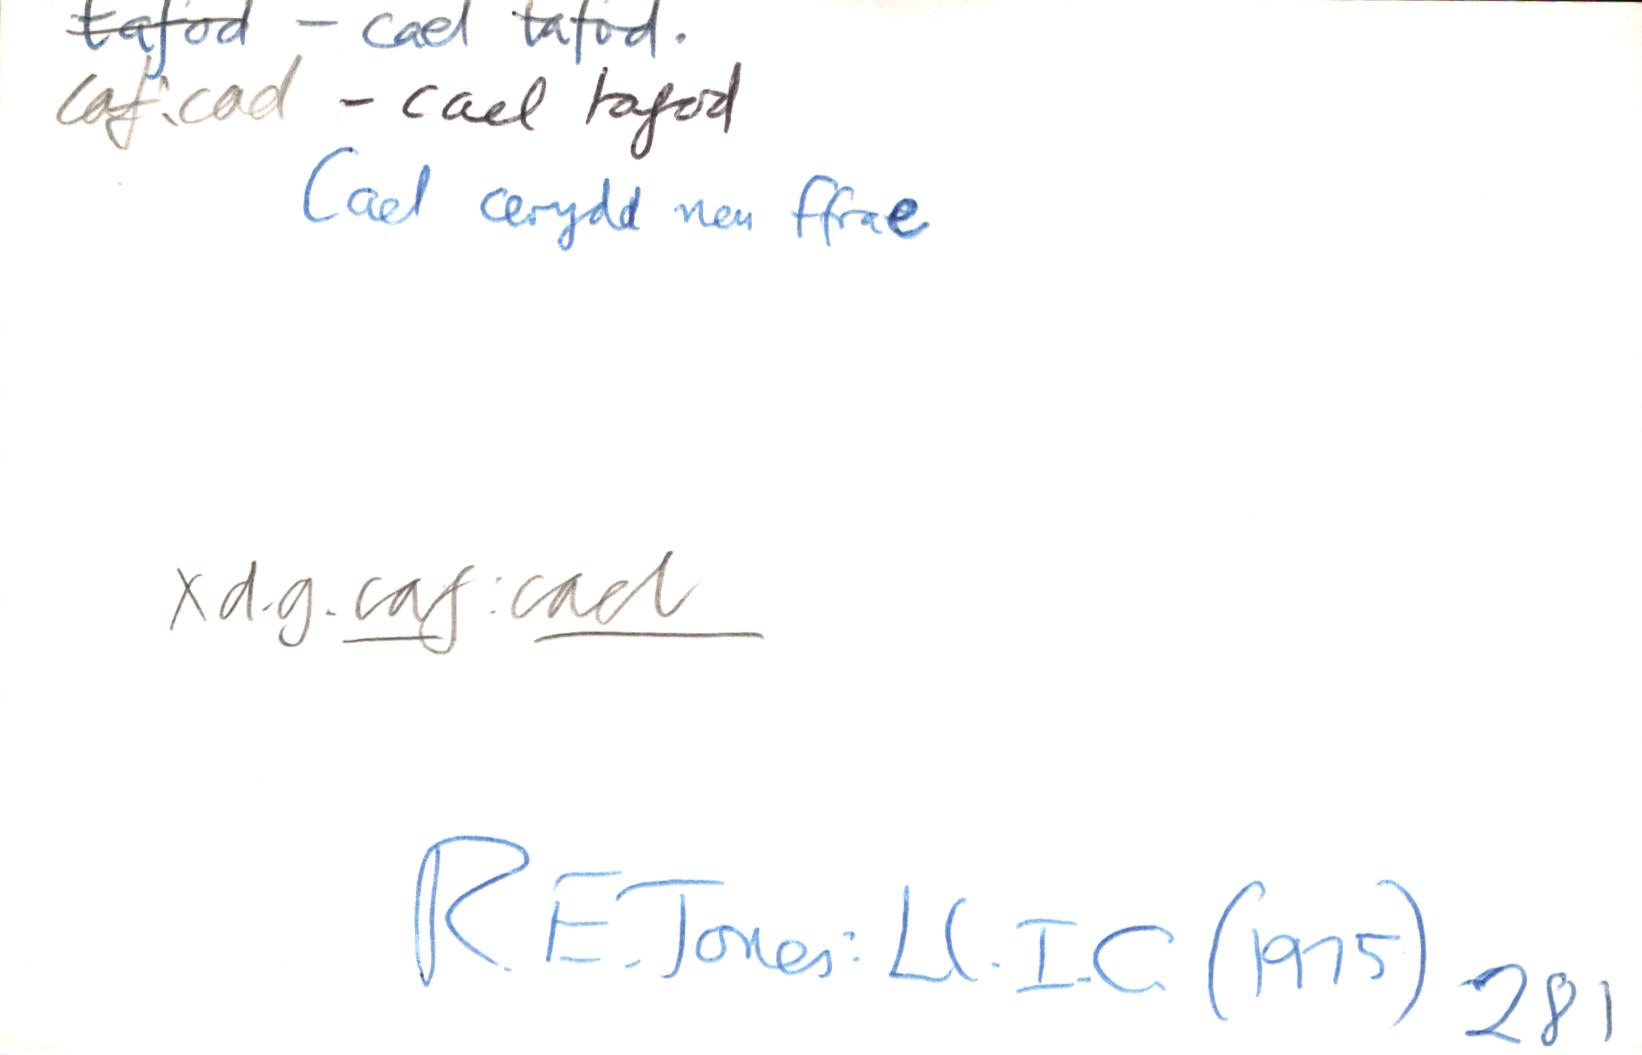 tafod – cael tafod.
caf: cad – cael tafod
Cael cerydd neu ffrae
x d.g. caf: cael
R. E. Jones: Ll. I. C (1975) 281